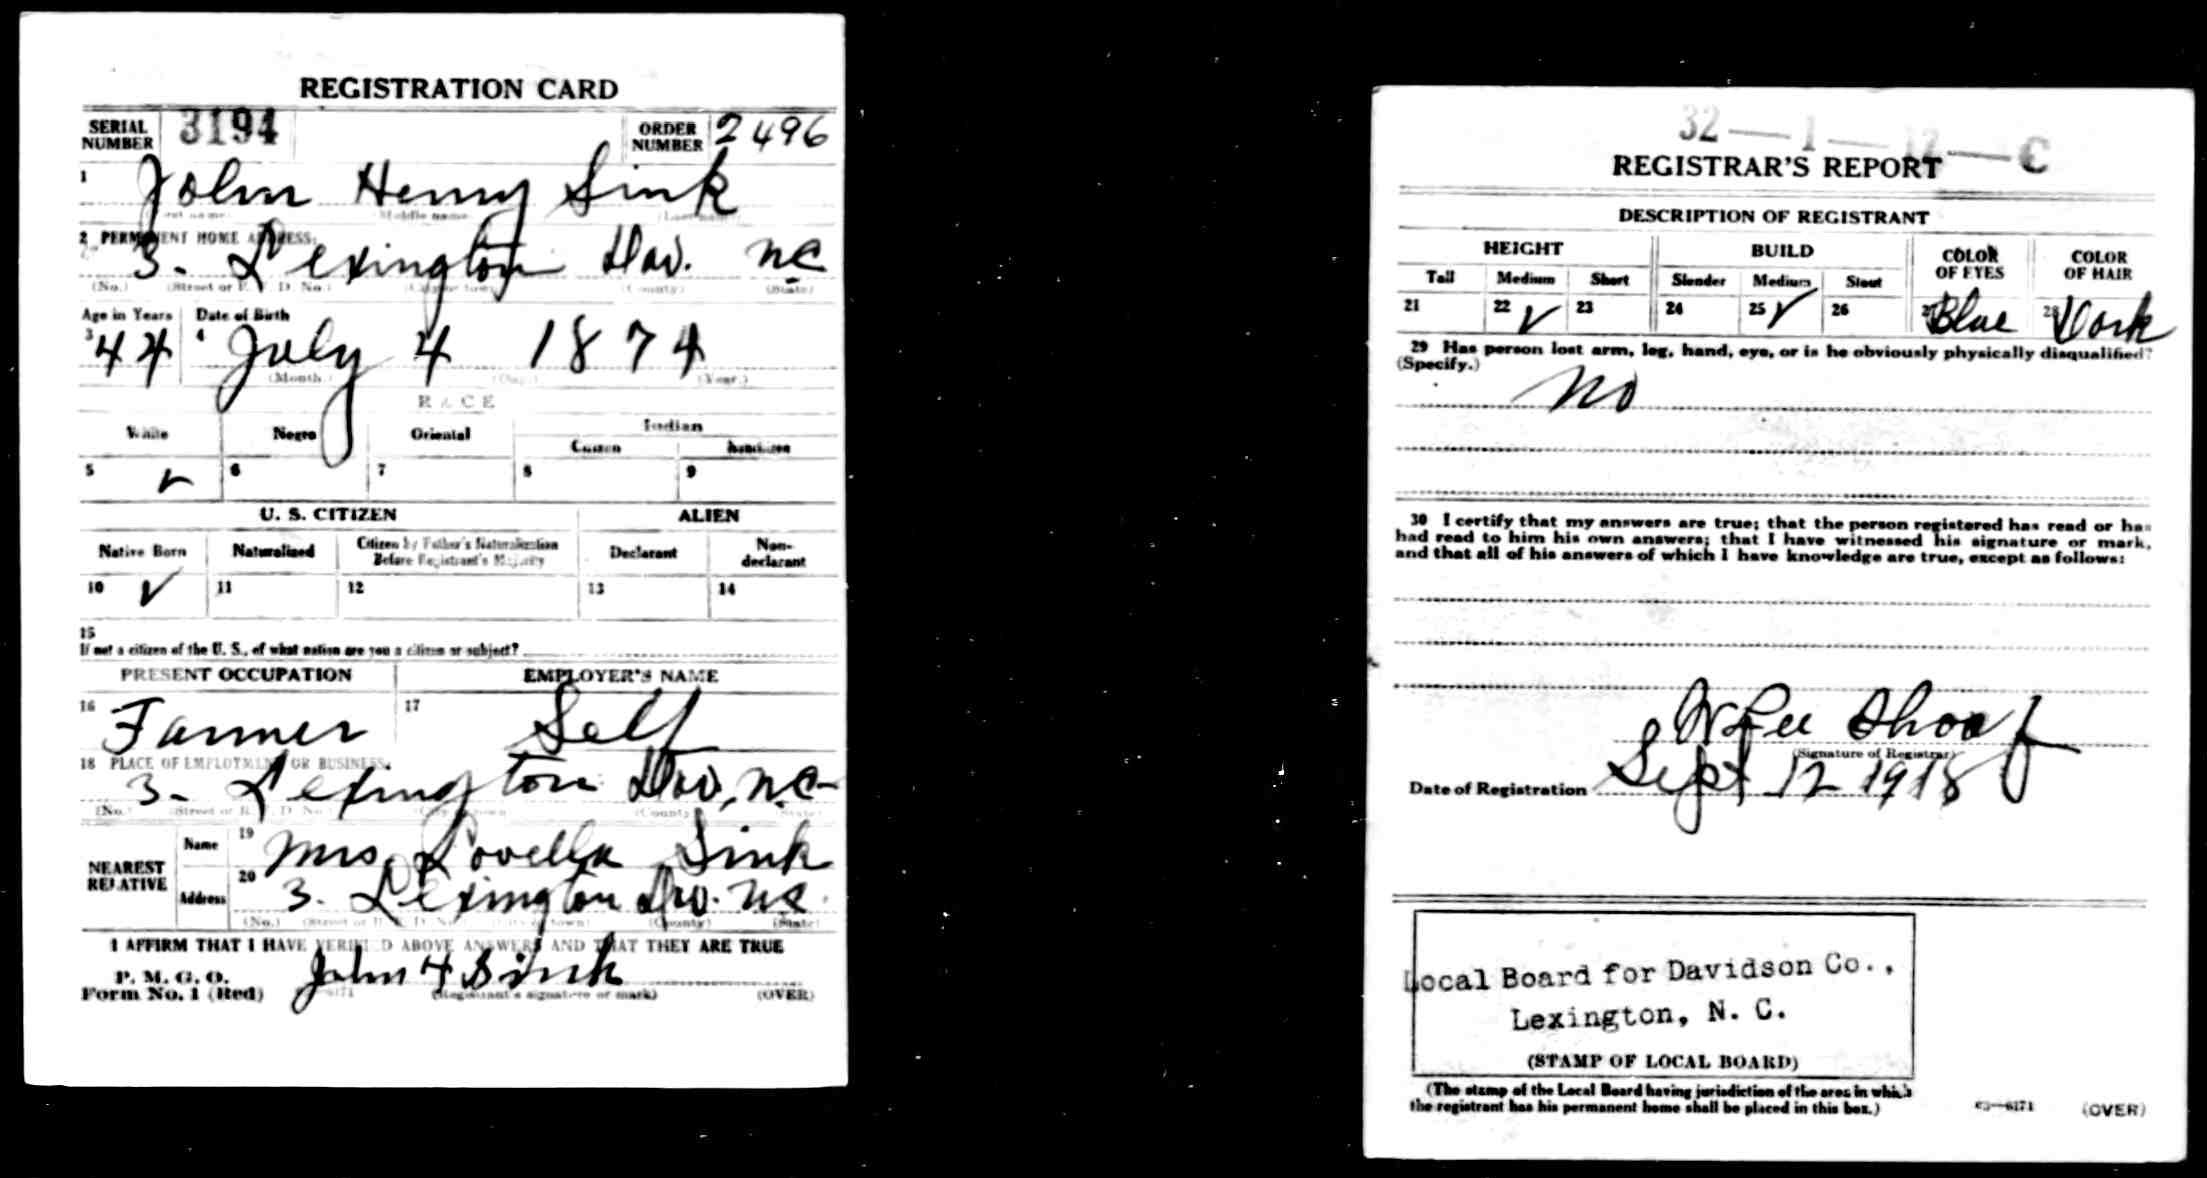 REGISTRATION CARD
SERIAL NUMBER 3194 ORDER NUMBER 2496
1 John Henry Sink
(Middle name) (Last name)
2 PERMANENT HOME ADDRESS:
3. Lexington Dav. NC
(No.) (Street or R. F. D. No.) (City or town) (County) (State)
Age in Years Date of Birth
3 44 4 July 4 1874
(Month.) (Day.) (Year.)
RACE
White Negro Oriental Indian
Citizen Noncitizen
5 ✓ 6 7 8 9
U. S. CITIZEN ALIEN
Native Born Naturalized Citizen by Father's Naturalization Before Registrant's Majority Declarant Non-declarant
10 ✓ 11 12 13 14
15
If not a citizen of the U. S., of what nation are you a citizen or subject?
PRESENT OCCUPATION EMPLOYER'S NAME
16 Farmer 17 Self
18 PLACE OF EMPLOYMENT OR BUSINESS:
3. Lexington Dav, NC
(No.) (Street or R. F. D. No.) (City or town) (County) (State)
NEAREST RELATIVE Name 19 Mrs Lovella Sink
Address 20 3. Lexington Dav. NC.
(No.) (Street or R. F. D. No.) (City or town) (County) (State)
I AFFIRM THAT I HAVE VERIFIED ABOVE ANSWERS AND THAT THEY ARE TRUE
P. M. G. O.
Form No. 1 (Red) John H Sink
(Registrant's signature or mark) (OVER)
32—1—12—C
REGISTRAR'S REPORT
DESCRIPTION OF REGISTRANT
HEIGHT BUILD COLOR OF EYES COLOR OF HAIR
Tall Medium Short Slender Medium Stout
21 22 ✓ 23 24 25 ✓ 26 27 Blue 28 Dark
29 Has person lost arm, leg, hand, eye, or is he obviously physically disqualified?
(Specify.)
No
30 I certify that my answers are true; that the person registered has read or has
had read to him his own answers; that I have witnessed his signature or mark,
and that all of his answers of which I have knowledge are true, except as follows:
W Lee Shoaf
(Signature of Registrar)
Date of Registration Sept 12 1918
Local Board for Davidson Co.,
Lexington, N. C.
(STAMP OF LOCAL BOARD)
(The stamp of the Local Board having jurisdiction of the area in which
the registrant has his permanent home shall be placed in this box.)
03—6171 (OVER)